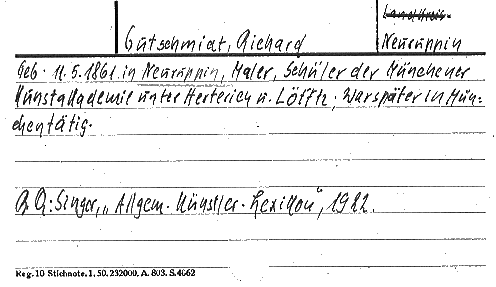 Landkreis
Gutschmidt, Richard
Neuruppin
Geb. 11.5.1861 in Neuruppin, Maler, Schüler der Münchener
Kunstakademie unter Herterich u. Löfftz. War später in Mün-
chen tätig.
QQ: Singer, "Allgem. Künstler-Lexikon", 1922.
Reg. 10 Stichnote. 1. 50. 232000. A. 803. S. 4662